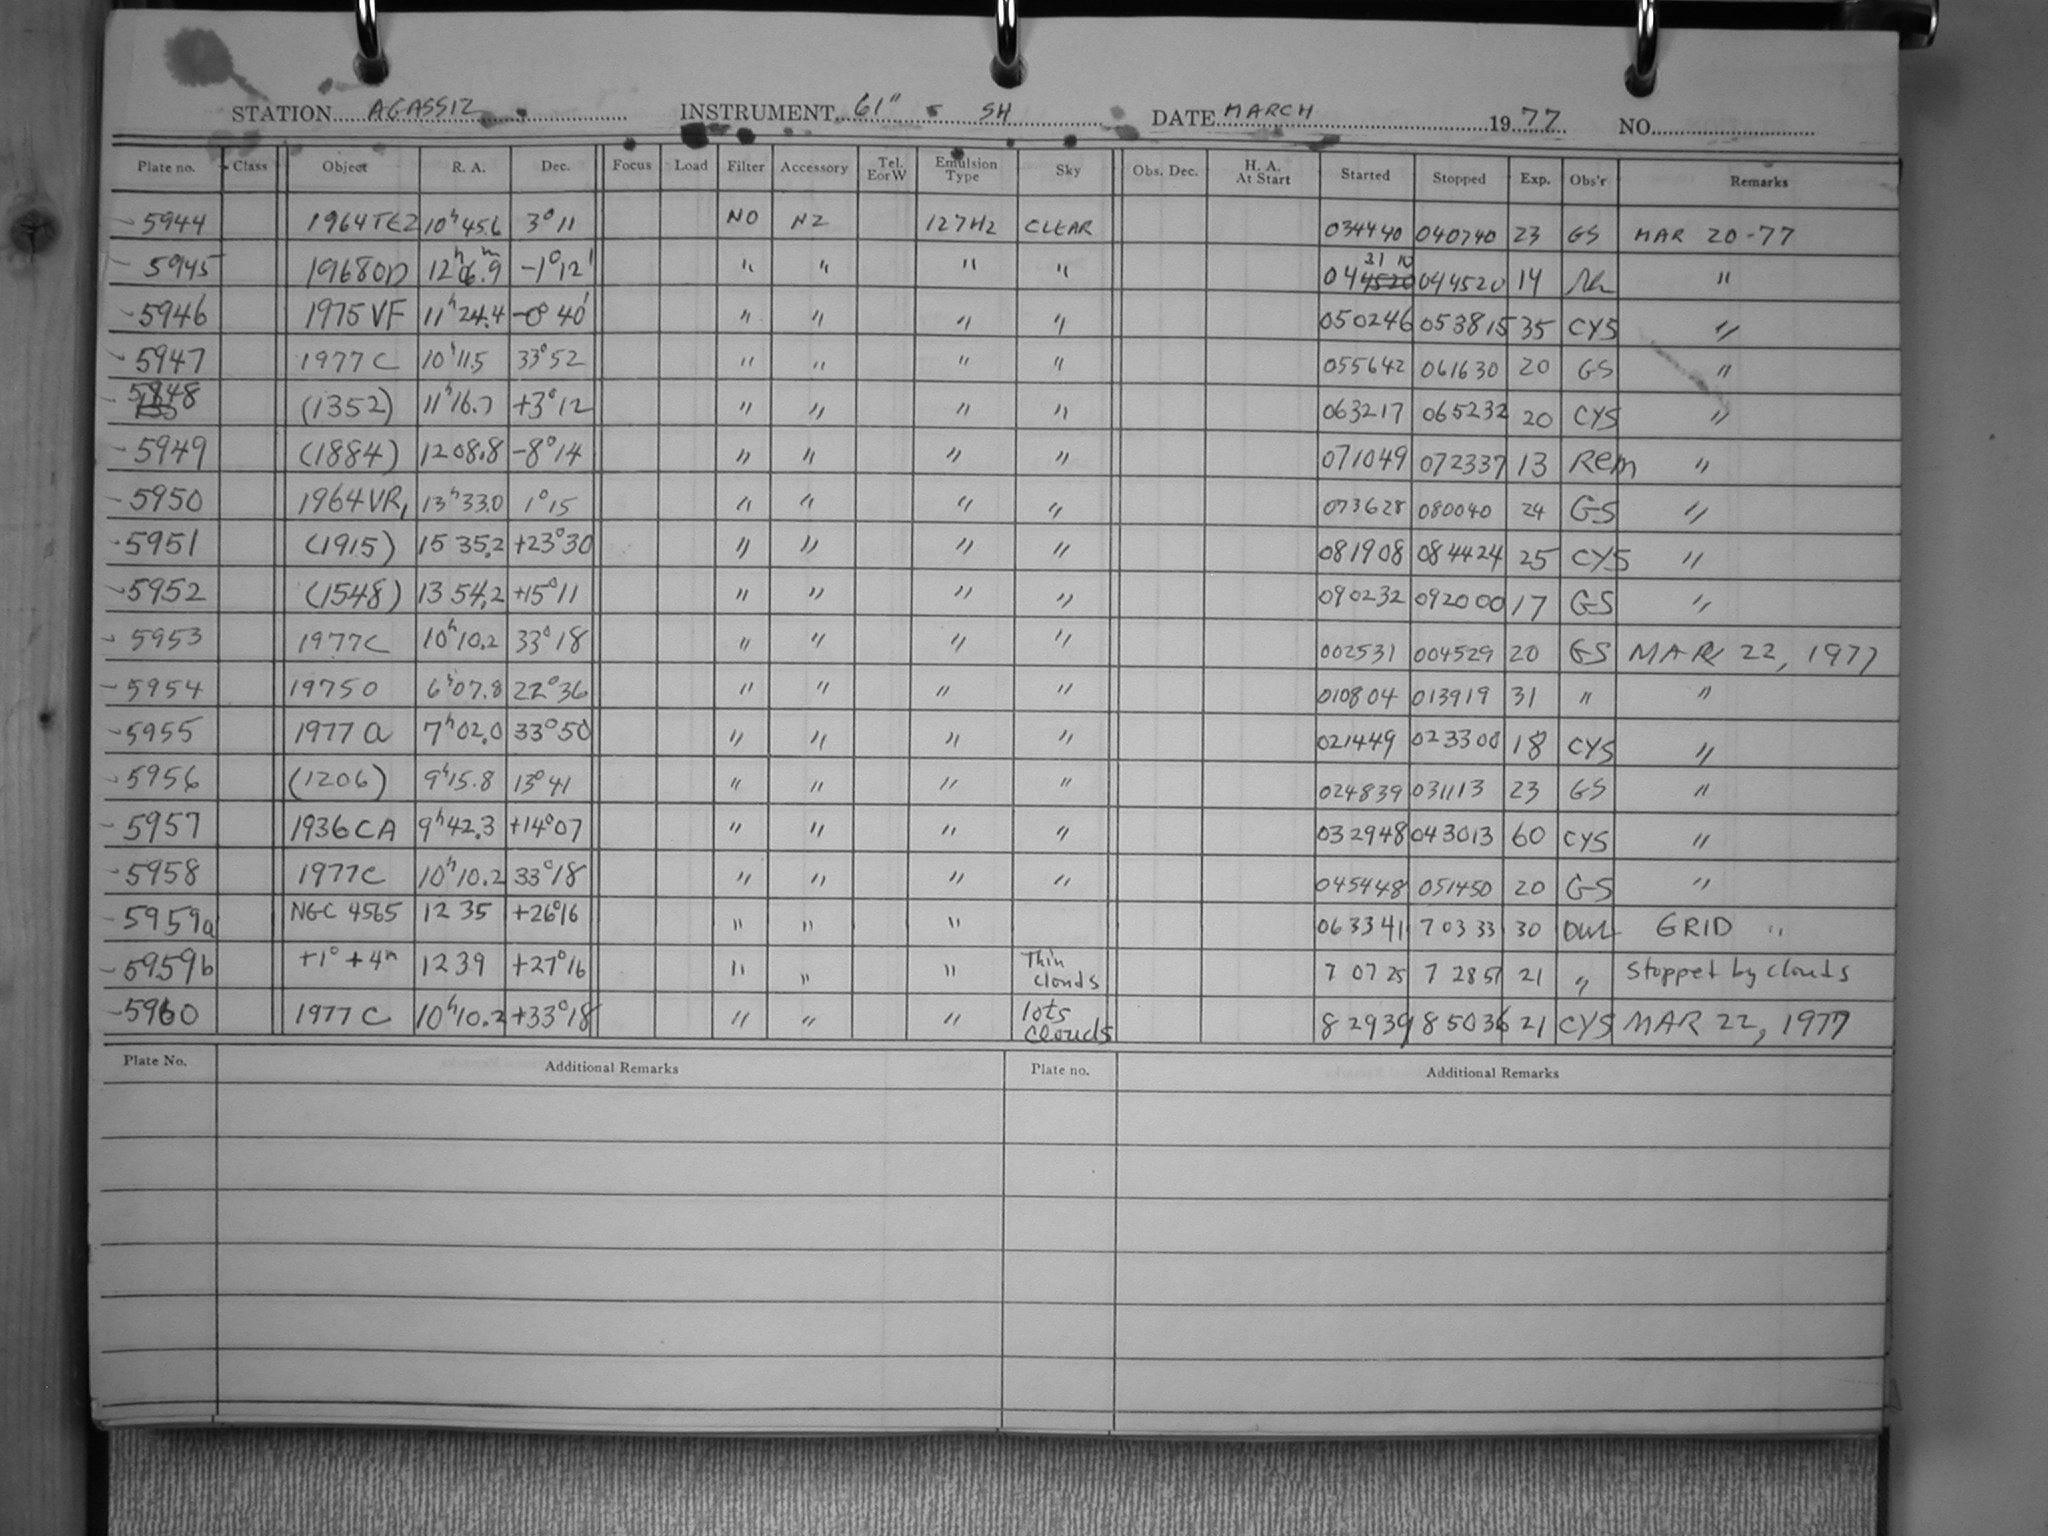 STATION AGASSIZ INSTRUMENT 61" - SH DATE MARCH 1977 NO.
Plate no. Class Object R. A. Dec. Focus Load Filter Accessory Tel. E or W Emulsion Type Sky Obs. Dec. H. A. At Start Started Stopped Exp. Obs'r Remarks
5944 1964TE2 10h45.6 3°11 NO N2 127H2 CLEAR 034440 040740 23 GS MAR 20-77
5945 1968OD 12h06.9m -1°12' " " " " 043110 044520 14 "
5946 1975VF 11h24.4 -0°40' " " " " 050246 053815 35 CYS "
5947 1977C 10h11.5 33°52 " " " " 055642 061630 20 GS "
5948 (1352) 11h16.7 +3°12 " " " " 063217 065232 20 CYS "
5949 (1884) 1208.8 -8°14 " " " " 071049 072337 13 Rem "
5950 1964VR1 13h33.0 1°15 " " " " 073628 080040 24 GS "
5951 (1915) 15 35.2 +23°30 " " " " 081908 084424 25 CYS "
5952 (1548) 13 54.2 +15°11 " " " " 090232 092000 17 GS "
5953 1977C 10h10.2 33°18 " " " " 002531 004529 20 GS MAR 22, 1977
5954 1975O 6h07.8 22°36 " " " " 010804 013919 31 " "
5955 1977 a 7h02.0 33°50 " " " " 021449 023300 18 CYS "
5956 (1206) 9h15.8 13°41 " " " " 024839 031113 23 GS "
5957 1936CA 9h42.3 +14°07 " " " " 032948 043013 60 CYS "
5958 1977C 10h10.2 33°18 " " " " 045448 051450 20 GS "
5959a NGC 4565 12 35 +26°16 " " " 063341 70333 30 DWL GRID "
5959b +1° +4m 1239 +27°16 " " " Thin clouds 7 07 25 7 28 51 21 " Stopped by clouds
5960 1977 C 10h10.2 +33°18 " " " lots clouds 82939 85036 21 CYS MAR 22, 1977
Plate No. Additional Remarks Plate no. Additional Remarks